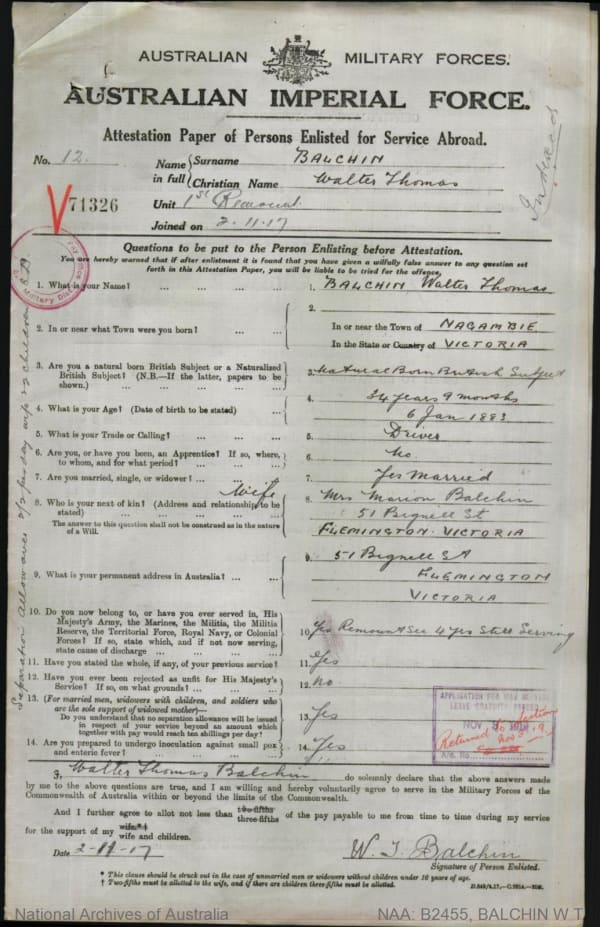 AUSTRALIAN MILITARY FORCES.
AUSTRALIAN IMPERIAL FORCE.
Attestation Paper of Persons Enlisted for Service Abroad.
Indexed
No. 12. Name in full Surname BALCHIN
Christian Name Walter Thomas
71326 Unit 1st Remount
Joined on 2.11.17
Questions to be put to the Person Enlisting before Attestation.
You are hereby warned that if after enlistment it is found that you have given a wilfully false answer to any question set
forth in this Attestation Paper, you will be liable to be tried for the offence.
1. What is your Name? ... ... ... 1. BALCHIN Walter Thomas
2. In or near what Town were you born? ... ... 2. In or near the Town of NAGAMBIE
In the State or Country of VICTORIA
3. Are you a natural born British Subject or a Naturalized
British Subject? (N.B.—If the latter, papers to be
shown.) ... ... ... ... 3. Natural Born British Subject
4. What is your Age? (Date of birth to be stated) ... 4. 34 years 9 months
6 Jan 1883
5. What is your Trade or Calling? ... ... ... 5. Driver
6. Are you, or have you been, an Apprentice? If so, where,
to whom, and for what period? ... ... ... 6. No
7. Are you married, single, or widower? ... ... 7. Yes Married
Wife
8. Who is your next of kin? (Address and relationship to be
stated) ... ... ... ...
The answer to this question shall not be construed as in the nature
of a Will.
8. Mrs Marion Balchin
51 Bignell St
FLEMINGTON. VICTORIA
9. What is your permanent address in Australia? ... ... 9. 51 Bignell St
FLEMINGTON
VICTORIA
10. Do you now belong to, or have you ever served in, His
Majesty's Army, the Marines, the Militia, the Militia
Reserve, the Territorial Force, Royal Navy, or Colonial
Forces? If so, state which, and if not now serving,
state cause of discharge ... ... ... 10. Yes Remount Sec 4 yrs Still Serving
11. Have you stated the whole, if any, of your previous service? 11. Yes
12. Have you ever been rejected as unfit for His Majesty's
Service? If so, on what grounds? ... ... ... 12. No
13. (For married men, widowers with children, and soldiers who
are the sole support of widowed mother)—
Do you understand that no separation allowance will be issued
in respect of your service beyond an amount which
together with pay would reach ten shillings per day? 13. Yes
14. Are you prepared to undergo inoculation against small pox
and enteric fever? ... ... ... 14. Yes
APPLICATION FOR WAR SERVICE
LEAVE GRATUITY
NOV
Returned to Section
Military Dist
Separation Allowance per day wife & children
I, Walter Thomas Balchin do solemnly declare that the above answers made
by me to the above questions are true, and I am willing and hereby voluntarily agree to serve in the Military Forces of the
Commonwealth of Australia within or beyond the limits of the Commonwealth.
And I further agree to allot not less than two-fifths three-fifths of the pay payable to me from time to time during my service
for the support of my wife*† wife and children.
Date 2-11-17 W. T. Balchin
Signature of Person Enlisted.
* This clause should be struck out in the case of unmarried men or widowers without children under 16 years of age.
† Two-fifths must be allotted to the wife, and if there are children three-fifths must be allotted.
National Archives of Australia NAA: B2455, BALCHIN W T